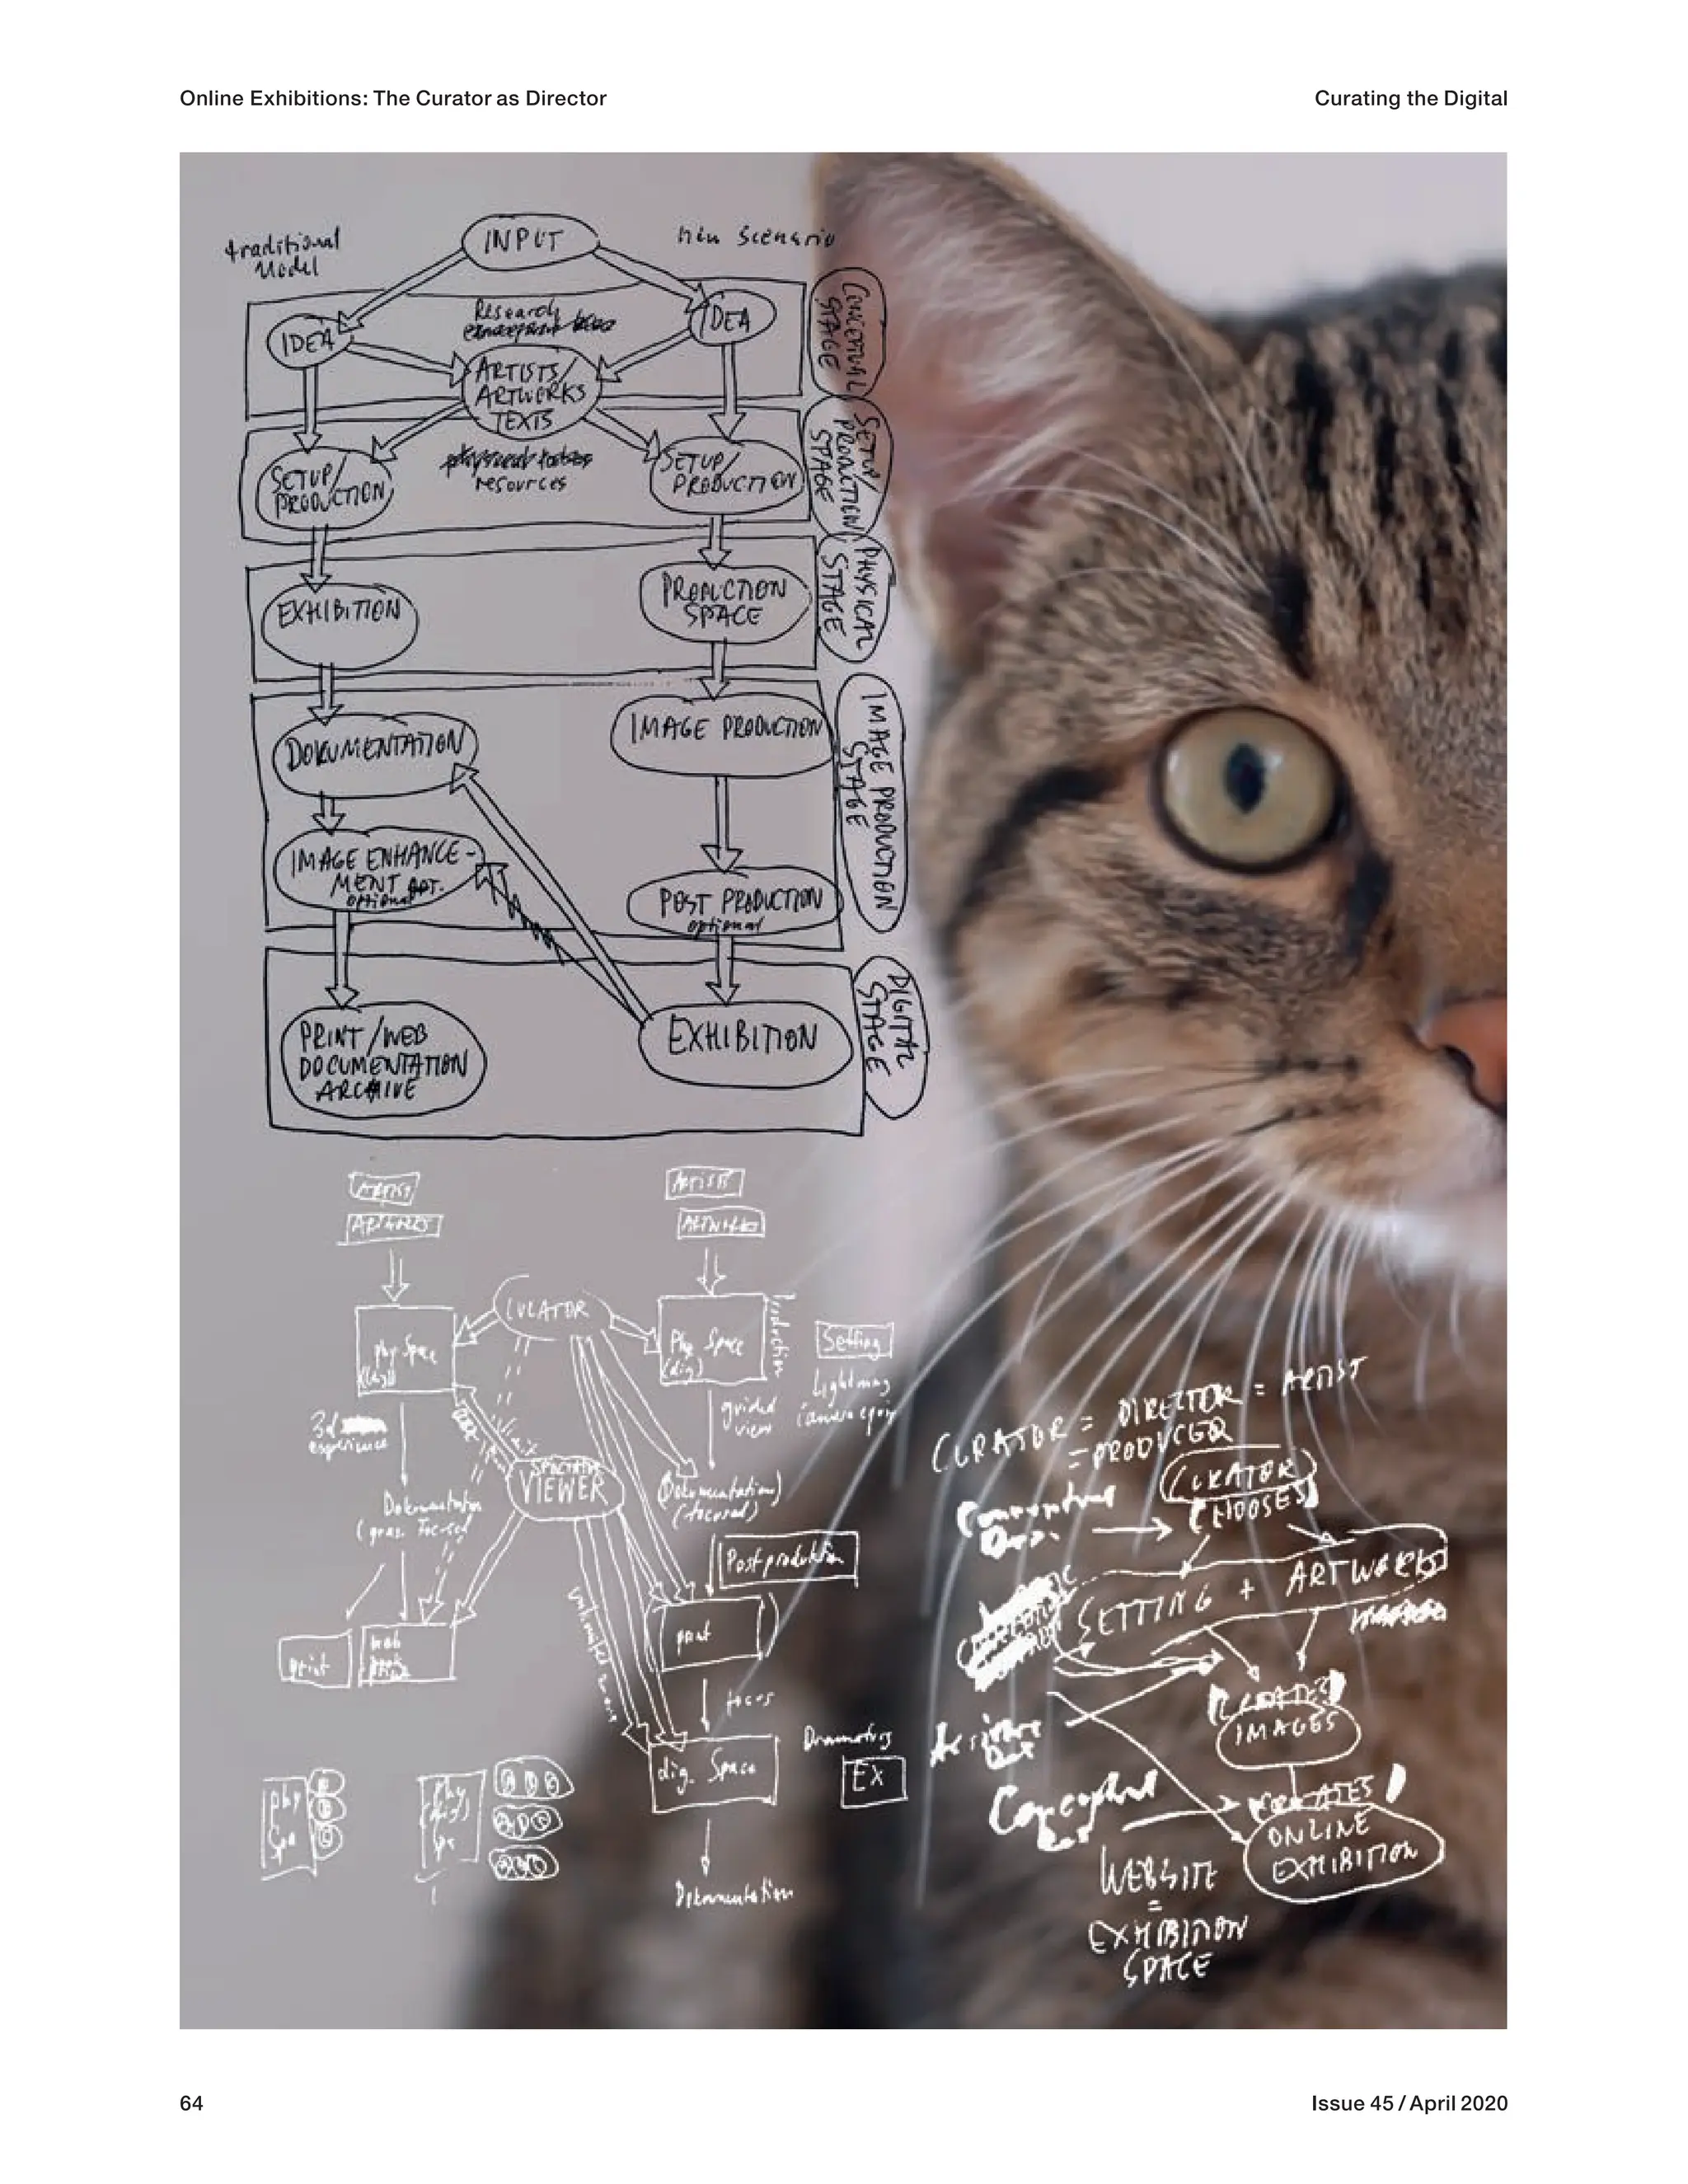 Online Exhibitions: The Curator as Director
Curating the Digital
traditional
Model
INPUT
new scenario
IDEA
Research
IDEA
ARTISTS/
ARTWORKS
TEXTS
CONCEPTUAL
STAGE
SETUP/
PRODUCTION
resources
SETUP/
PRODUCTION
SETUP/
PRODUCTION
STAGE
EXHIBITION
PRODUCTION
SPACE
PHYSICAL
STAGE
DOKUMENTATION
IMAGE PRODUCTION
IMAGE PRODUCTION
STAGE
IMAGE ENHANCE-
MENT
optional
POST PRODUCTION
optional
PRINT/WEB
DOCUMENTATION
ARCHIVE
EXHIBITION
DIGITAL
STAGE
ARTIST
ARTISTS
ARTWORKS
ARTWORKS
CURATOR
phy Space
Phy Space
(dig)
Production
Setting
Lightning
camera
3d
experience
guided
view
VIEWER
Dokumentation
Dokumentation
(focused)
Postproduktion
print
print
focus
dig. Space
EX
Dokumentation
CURATOR = DIREKTOR = ARTIST
= PRODUCER
CURATOR
CHOOSES
SETTING + ARTWORKS
CREATES
IMAGES
Conceptual
CREATES
ONLINE
EXHIBITION
WEBSITE
=
EXHIBITION
SPACE
64
Issue 45 / April 2020